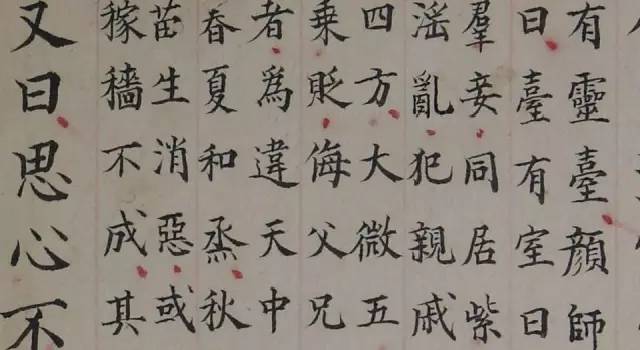 有靈臺顏師
曰臺有室曰
羣妾同居紫
滛亂犯親戚
四方大微五
乗貶侮父兄
者爲違天中
春夏和烝秋
苗生消惡或
稼穡不成其
又曰思心不